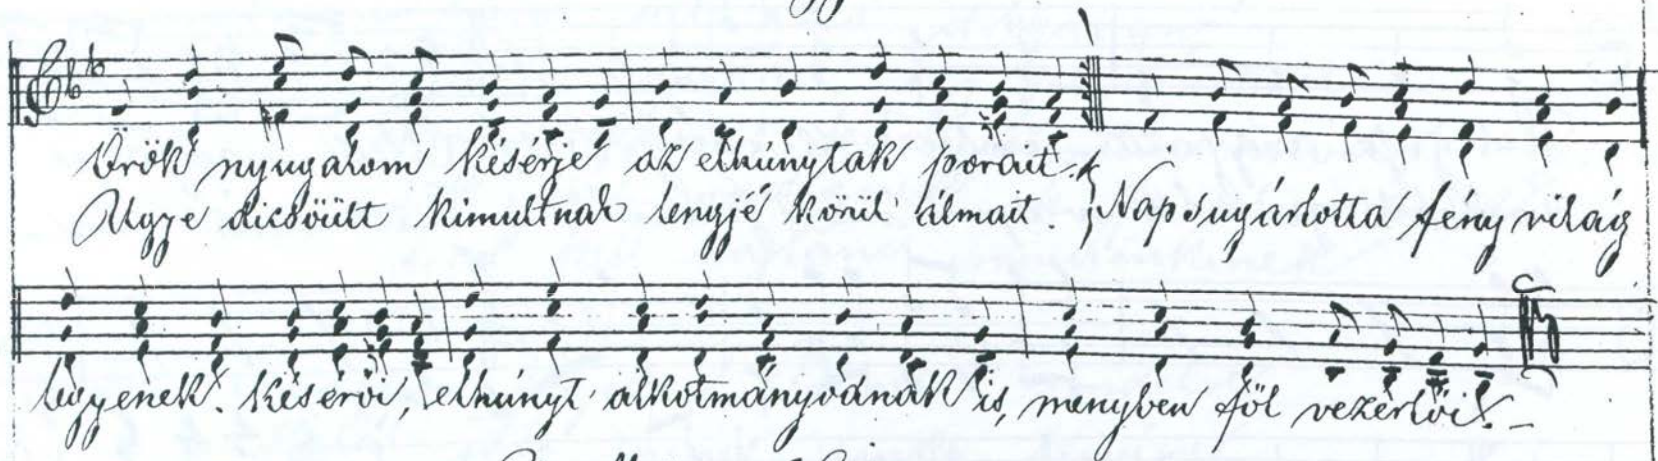 Örök nyugalom késérje az elhúnytak porait.
Ugye dicsöült kimultnak lengjé körül álmait. Napsugárlotta fény világ
legyenek késérői, elhúnyt alkotmányvának is, menyben föl vezérlői.